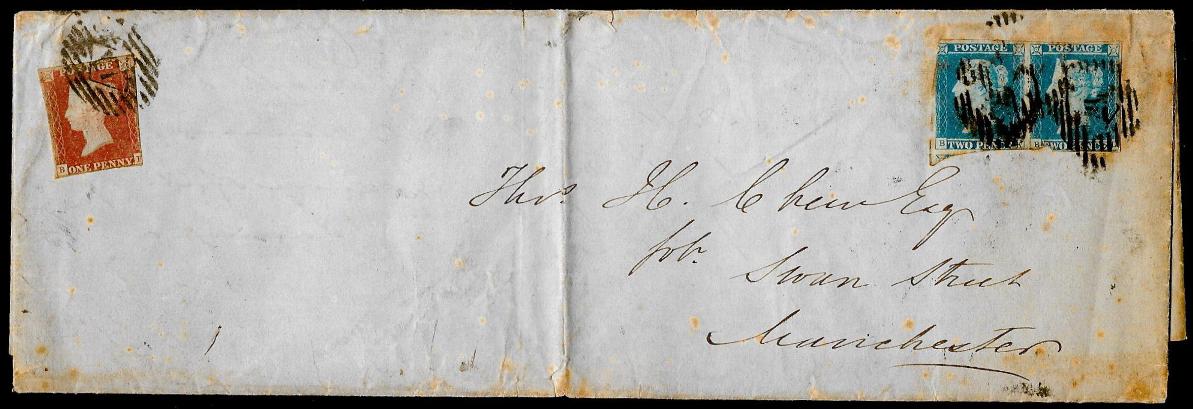 POSTAGE
B ONE PENNY
POSTAGE POSTAGE
B TWO PENCE
Thos. H. Chew Esq
Swan Street
Manchester